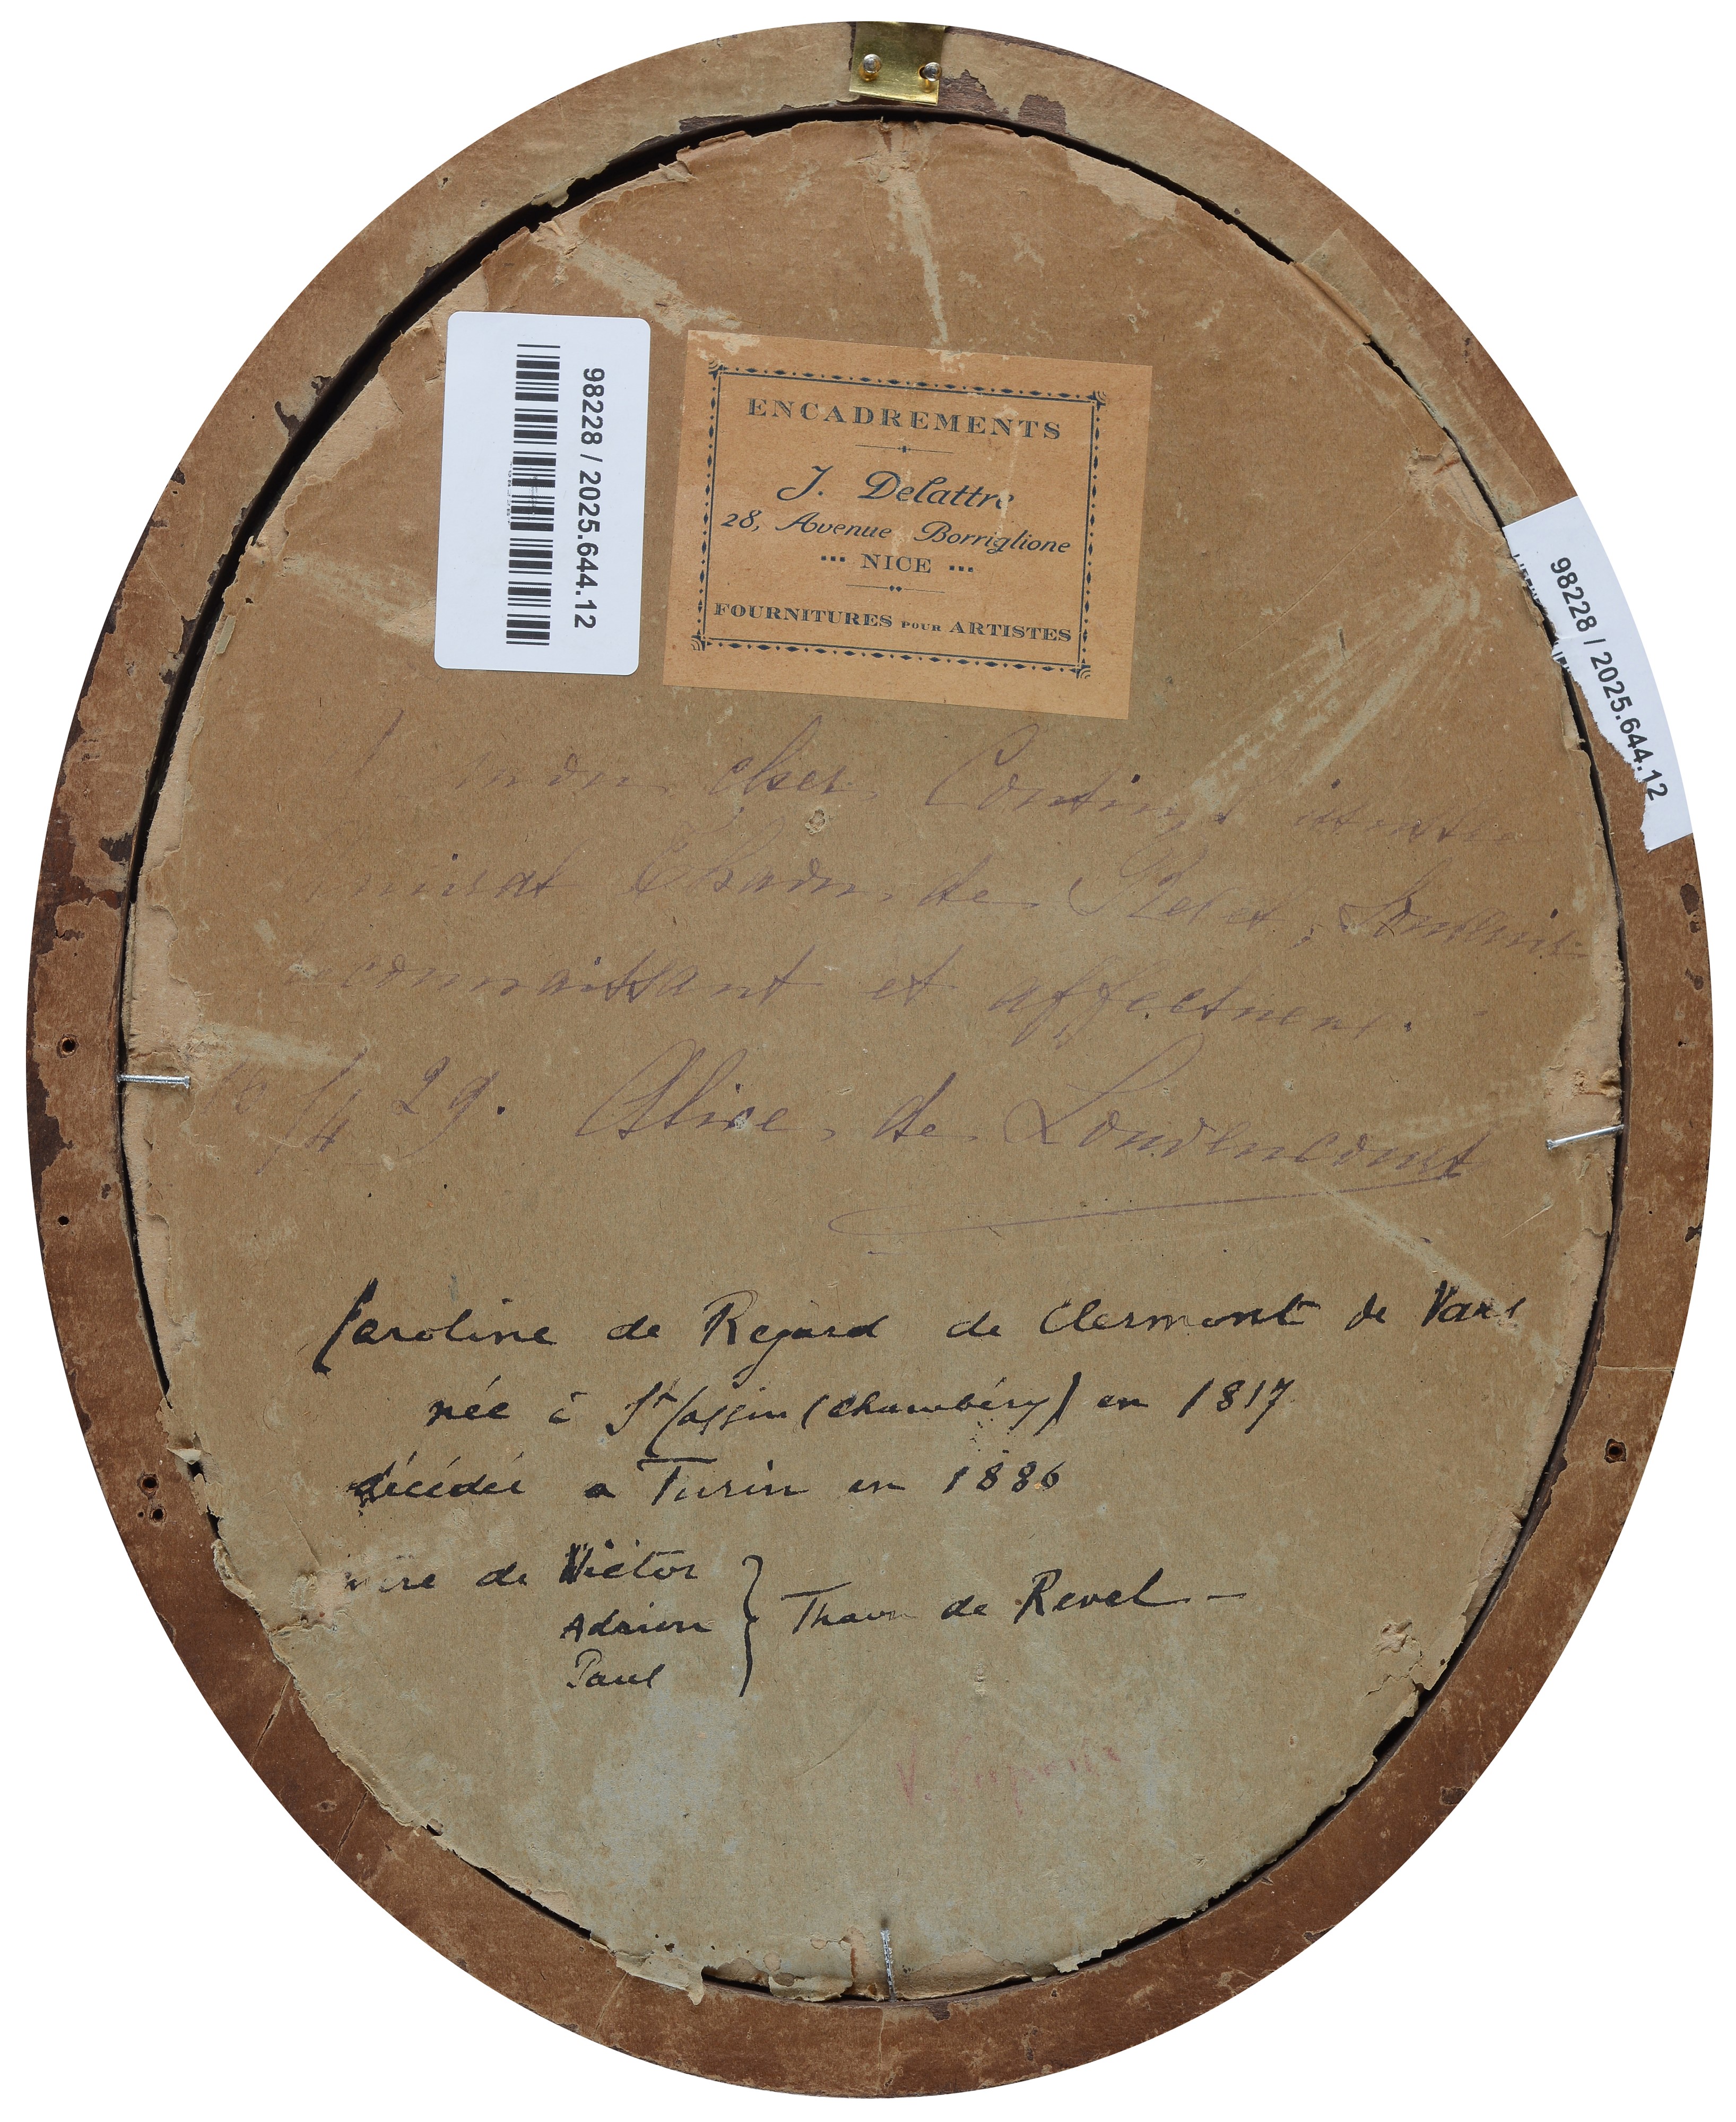 98228 / 2025.644.12
ENCADREMENTS
J. Delattre
28, Avenue Borriglione
NICE
FOURNITURES POUR ARTISTES
98228 / 2025.644.12
mon cher
Thaon de Revel, Souvenir
connaissant et affectueux.
/4 29. Alice de Louvencourt
Caroline de Regard de Clermont de Vars
née à St Cassin (Chambéry) en 1817
décédée a Turin en 1886
mère de Victor
Adrien
Paul
Thaon de Revel -